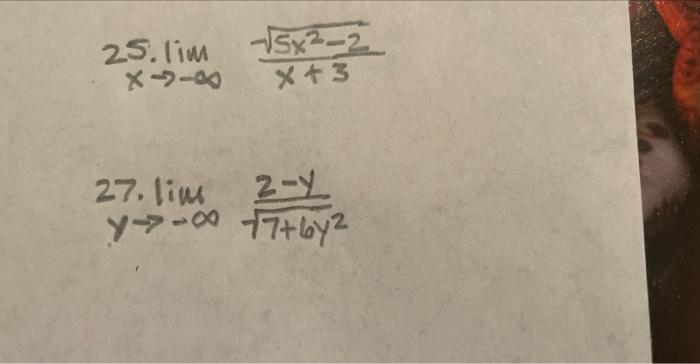 25. lim √5x²-2
x→-∞ x+3
27. lim 2-y
y→-∞ √7+6y²